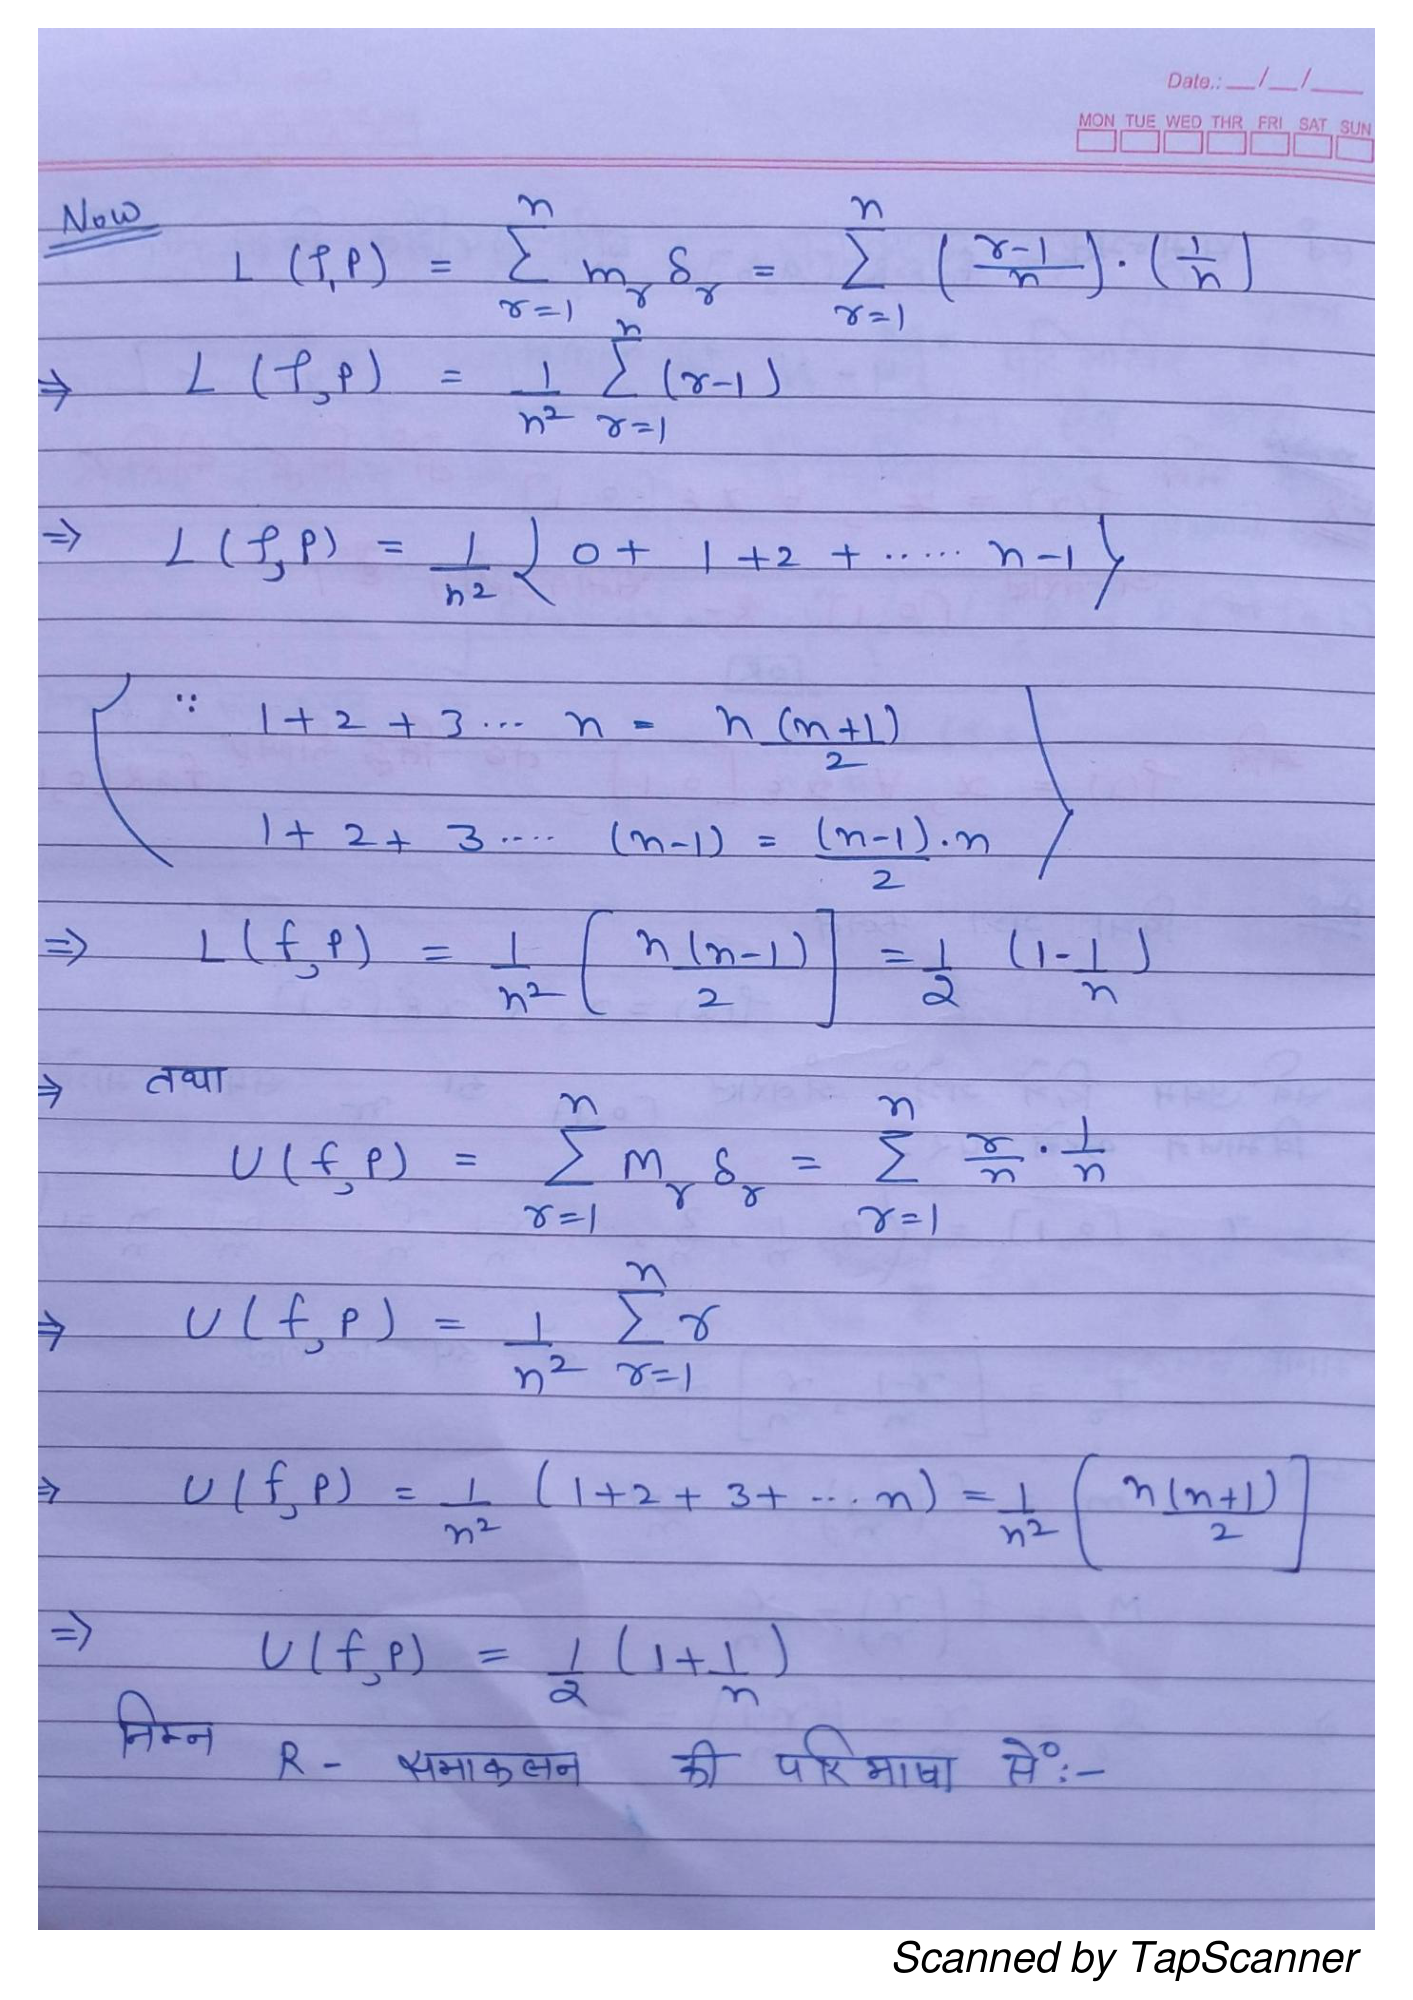 Date.: __/__/___
MON TUE WED THR FRI SAT SUN
Now
L (f,P) = \sum_{r=1}^{n} m_r δ_r = \sum_{r=1}^{n} (\frac{r-1}{n}) . (\frac{1}{n})
⇒ L (f,P) = \frac{1}{n^2} \sum_{r=1}^{n} (r-1)
⇒ L (f,P) = \frac{1}{n^2} { 0 + 1 + 2 + ..... n-1 }
( ∵ 1 + 2 + 3 ... n = \frac{n (n+1)}{2}
1 + 2 + 3 .... (n-1) = \frac{(n-1).n}{2} )
⇒ L (f,P) = \frac{1}{n^2} [ \frac{n(n-1)}{2} ] = \frac{1}{2} (1-\frac{1}{n})
⇒ तथा
U (f,P) = \sum_{r=1}^{n} M_r δ_r = \sum_{r=1}^{n} \frac{r}{n} . \frac{1}{n}
⇒ U (f,P) = \frac{1}{n^2} \sum_{r=1}^{n} r
⇒ U (f,P) = \frac{1}{n^2} (1+2+3+ ... n) = \frac{1}{n^2} [ \frac{n(n+1)}{2} ]
⇒ U (f,P) = \frac{1}{2} (1+\frac{1}{n})
निम्न R - समाकलन की परिभाषा से :-
Scanned by TapScanner